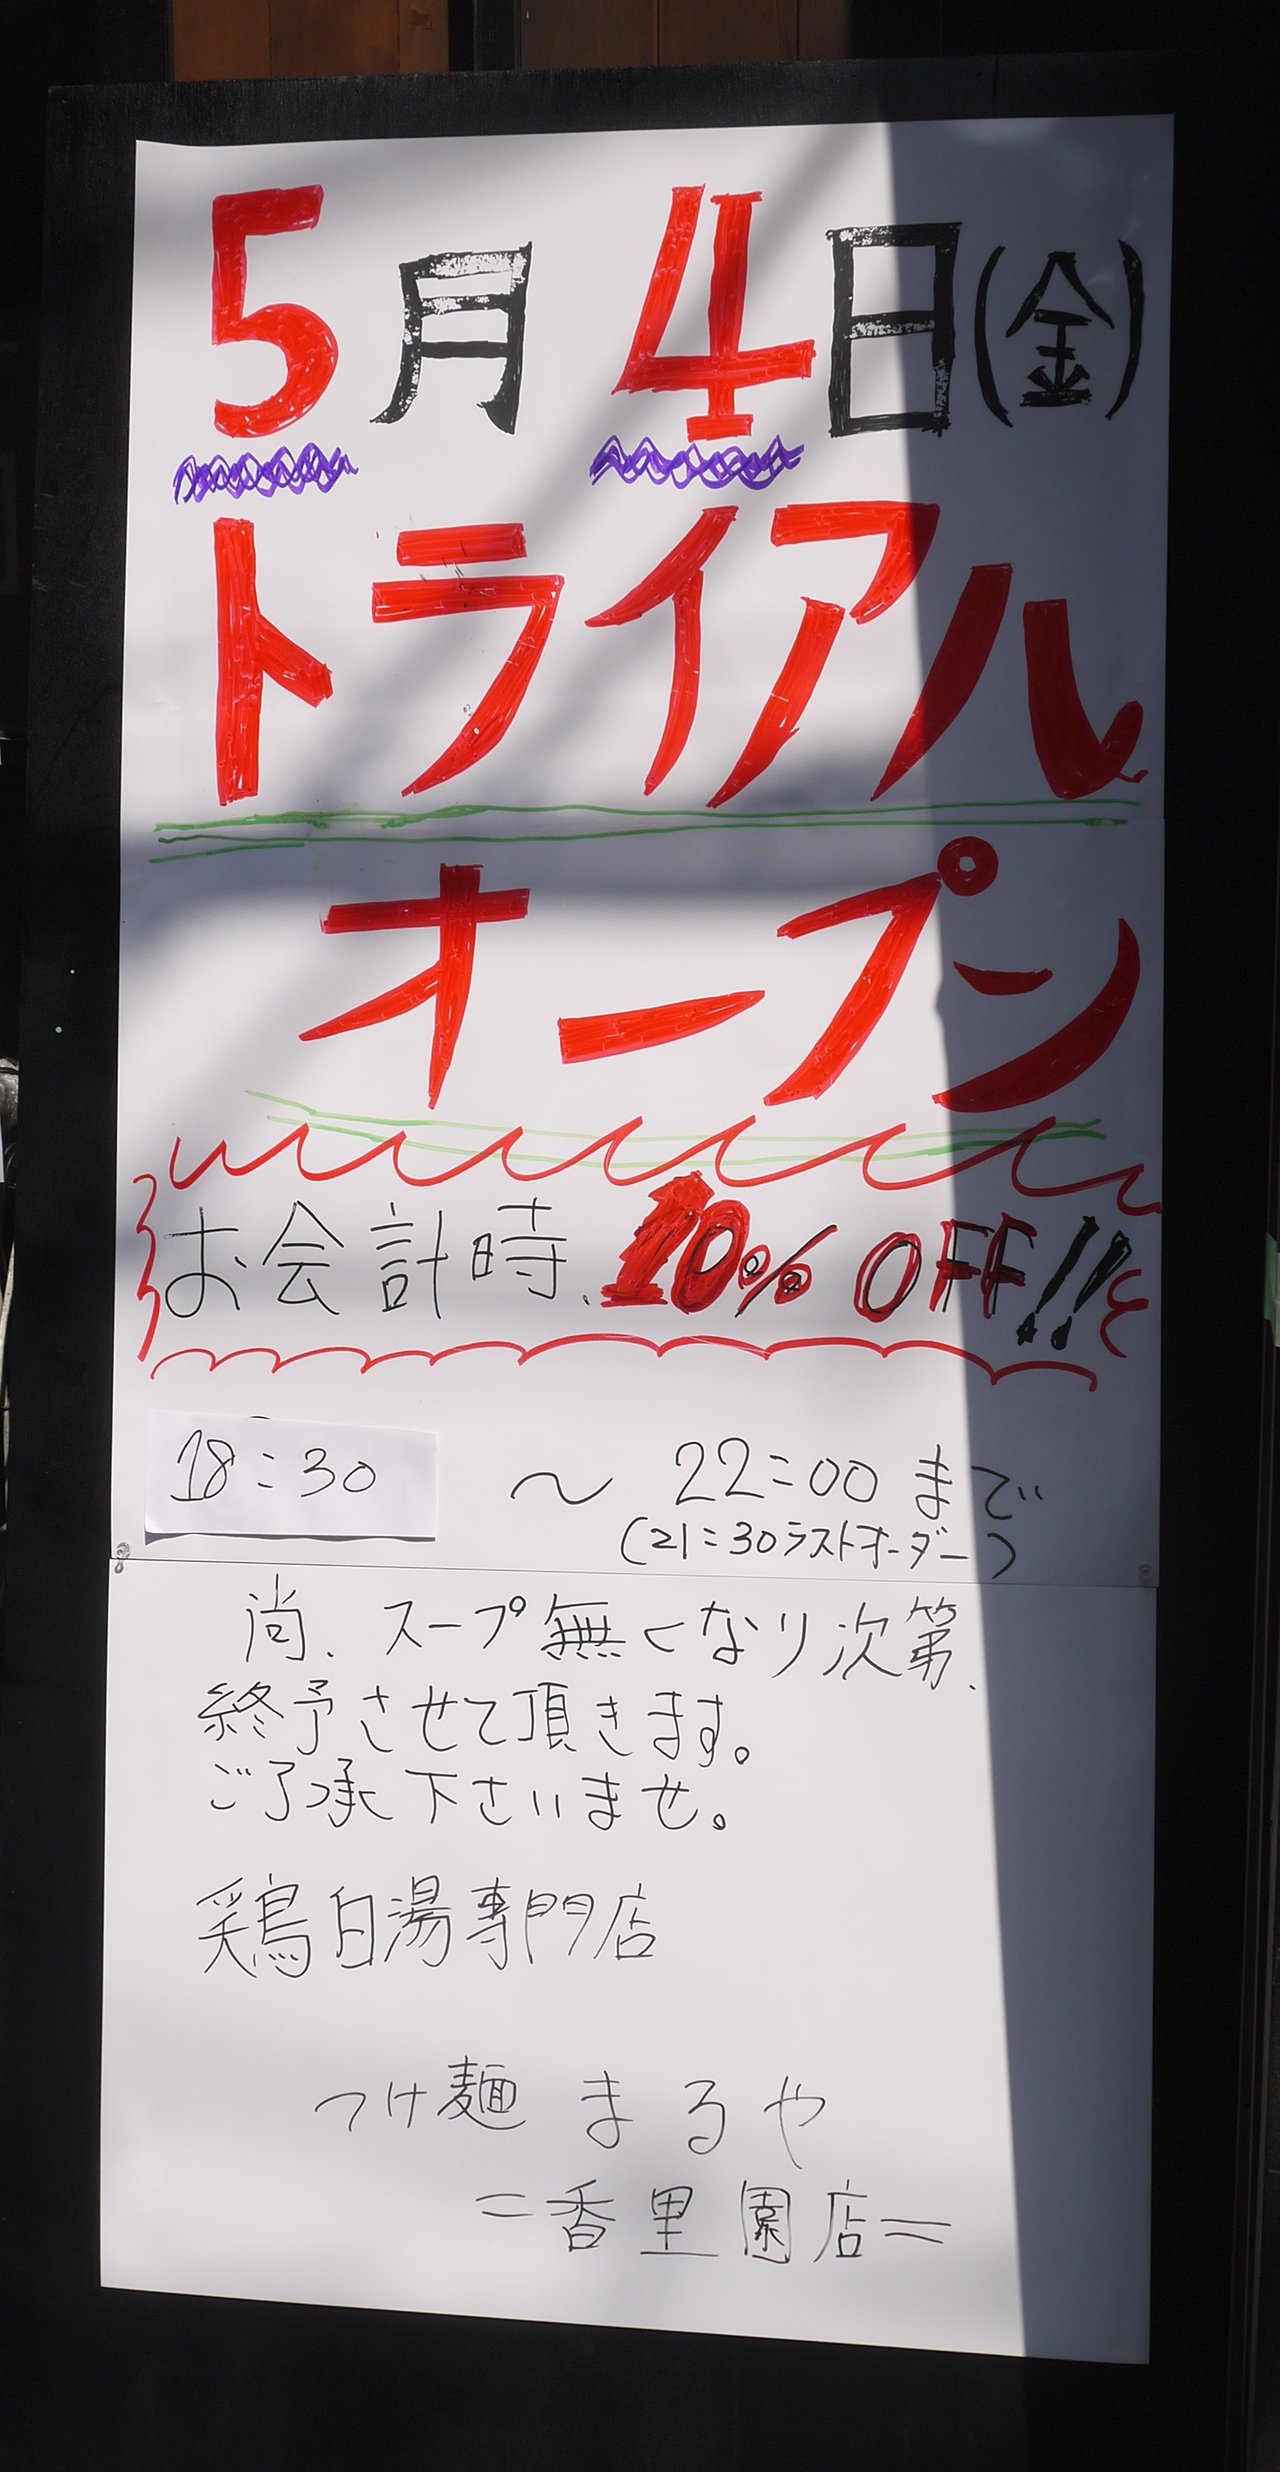 5月4日(金)
トライアル
オープン
お会計時、10% OFF!!
18:30 〜 22:00 まで
(21:30ラストオーダー)
尚、スープ無くなり次第、
終予させて頂きます。
ご了承下さいませ。
鶏白湯専門店
つけ麺 まるや
=香里園店=